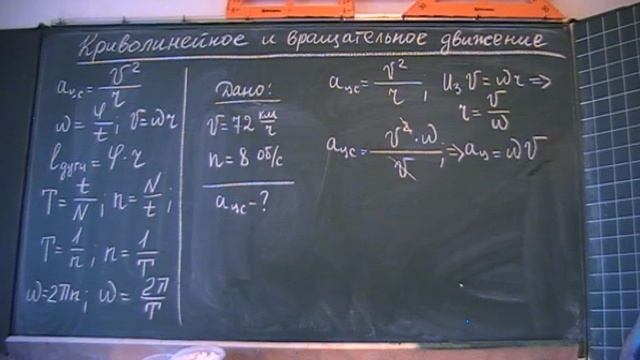 Криволинейное и вращательное движение
aцс = v²/r
ω = φ/t; v = ωr
lдуги = φ·r
T = t/N; n = N/t;
T = 1/n; n = 1/T
ω = 2πn; ω = 2π/T
Дано:
v = 72 км/ч
n = 8 об/с
aцс - ?
aцс = v²/r, Из v = ωr ⇒
r = v/ω
aцс = v²·ω/v; ⇒ aц = ωv